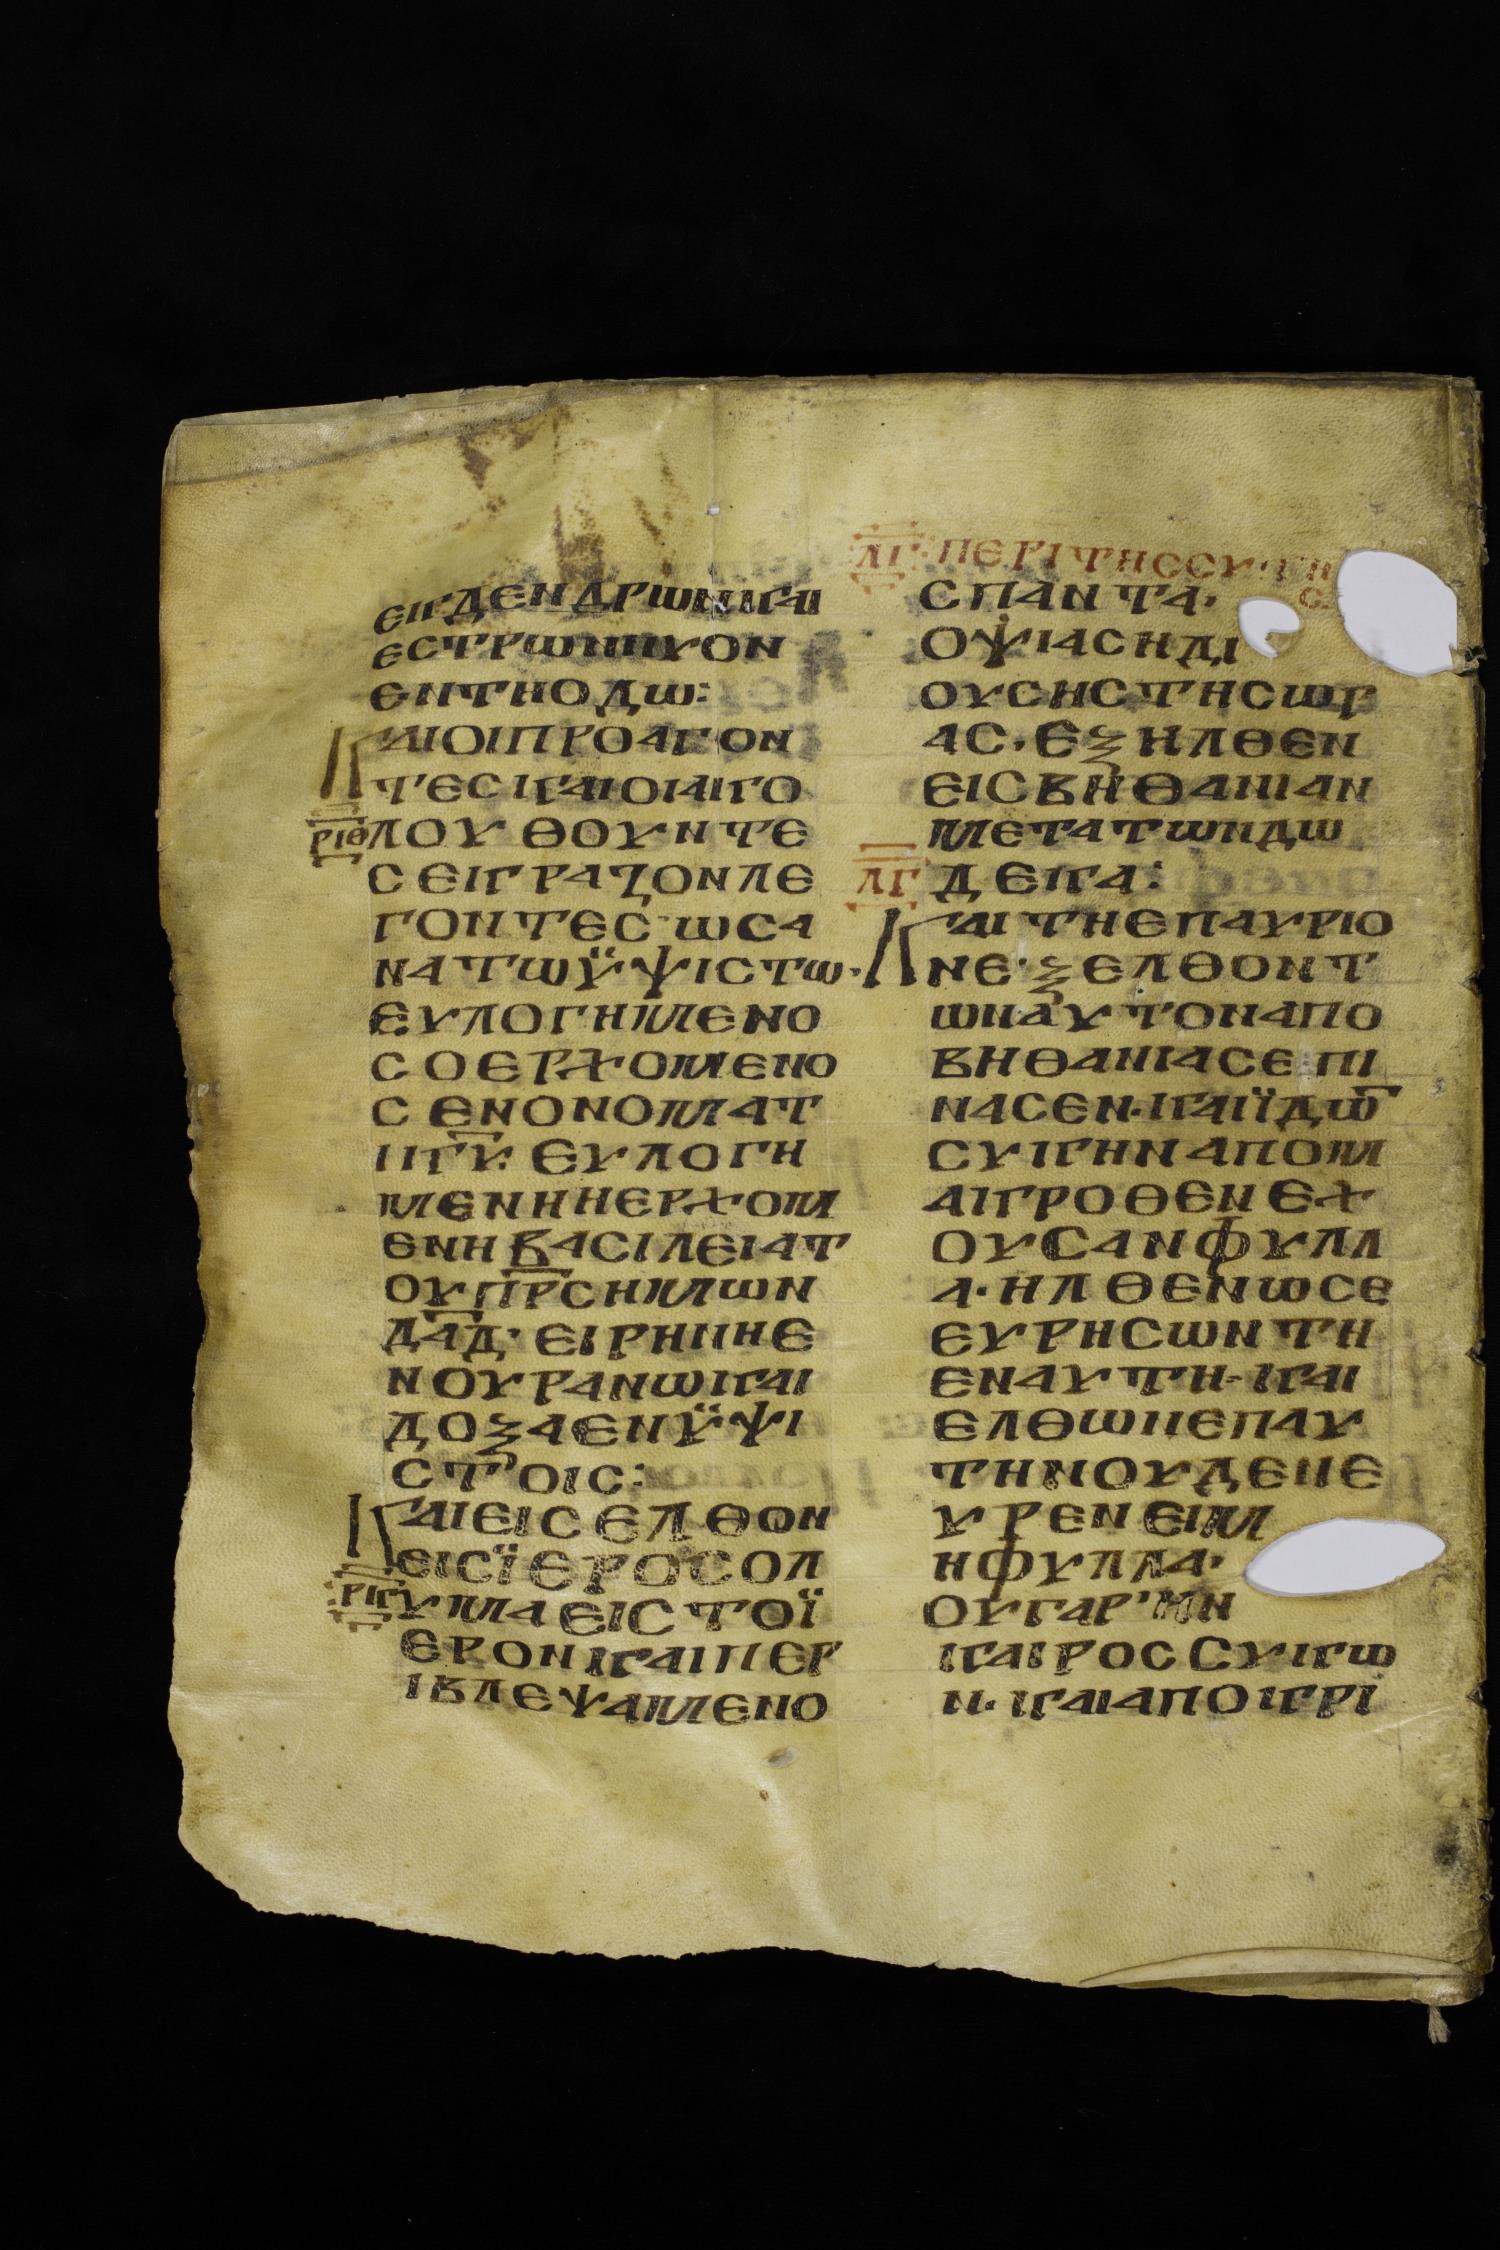 ΕΚΔΕΝΔΡΩΝΚΑΙ
ΕΣΤΡΩΝΝΥΟΝ
ΕΝΤΗΟΔΩ:
ΚΑΙΟΙΠΡΟΑΓΟΝ
ΤΕΣΚΑΙΟΙΑΚΟ
ΡΙΘ
ΛΟΥΘΟΥΝΤΕ
ΣΕΚΡΑΖΟΝΛΕ
ΓΟΝΤΕΣ·ΩΣΑ
ΝΑΤΩΫΨΙΣΤΩ·
ΕΥΛΟΓΗΜΕΝΟ
ΣΟΕΡΧΟΜΕΝΟ
ΣΕΝΟΝΟΜΑΤ
ΙΚ̅Υ̅·ΕΥΛΟΓΗ
ΜΕΝΗΗΕΡΧΟΜ
ΕΝΗΒΑΣΙΛΕΙΑΤ
ΟΥΠ̅Ρ̅Σ̅ΗΜΩΝ
Δ̅Α̅Δ̅·ΕΙΡΗΝΗΕ
ΝΟΥΡΑΝΩΚΑΙ
ΔΟΞΑΕΝΫΨΙ
ΣΤΟΙΣ:
ΚΑΙΕΙΣΕΛΘΟΝ
ΕΙΣΪΕΡΟΣΟΛ
ΡΙΓ
ΥΜΑΕΙΣΤΟΪ
ΕΡΟΝΚΑΙΠΕΡ
ΙΒΛΕΨΑΜΕΝΟ
ΛΓ·ΠΕΡΙΤΗΣΣΥ·ΚΗ
Σ·
ΣΠΑΝΤΑ·
ΟΨΙΑΣΗΔΙ
ΟΥΣΗΣΤΗΣΩΡ
ΑΣ·ΕΞΗΛΘΕΝ
ΕΙΣΒΗΘΑΝΙΑΝ
ΜΕΤΑΤΩΝΔΩ
ΛΓ
ΔΕΚΑ:
ΚΑΙΤΗΕΠΑΥΡΙΟ
ΝΕ·ΞΕΛΘΟΝΤ
ΩΝΑΥΤΟΝΑΠΟ
ΒΗΘΑΝΙΑΣΕΠΙ
ΝΑΣΕΝ·ΚΑΙΪΔΩ̅
ΣΥΚΗΝΑΠΟΜ
ΑΚΡΟΘΕΝΕΧ
ΟΥΣΑΝΦΥΛΛ
Α·ΗΛΘΕΝΩΣΕ
ΕΥΡΗΣΩΝΤΗ
ΕΝΑΥΤΗ·ΚΑΙ
ΕΛΘΩΝΕΠΑΥ
ΤΗΝΟΥΔΕΝΕ
ΥΡΕΝΕΙΜ
ΗΦΥΛΛΑ·
ΟΥΓΑΡ'ΗΝ
ΚΑΙΡΟΣΣΥΚΩ
Ν·ΚΑΙΑΠΟΚΡΙ